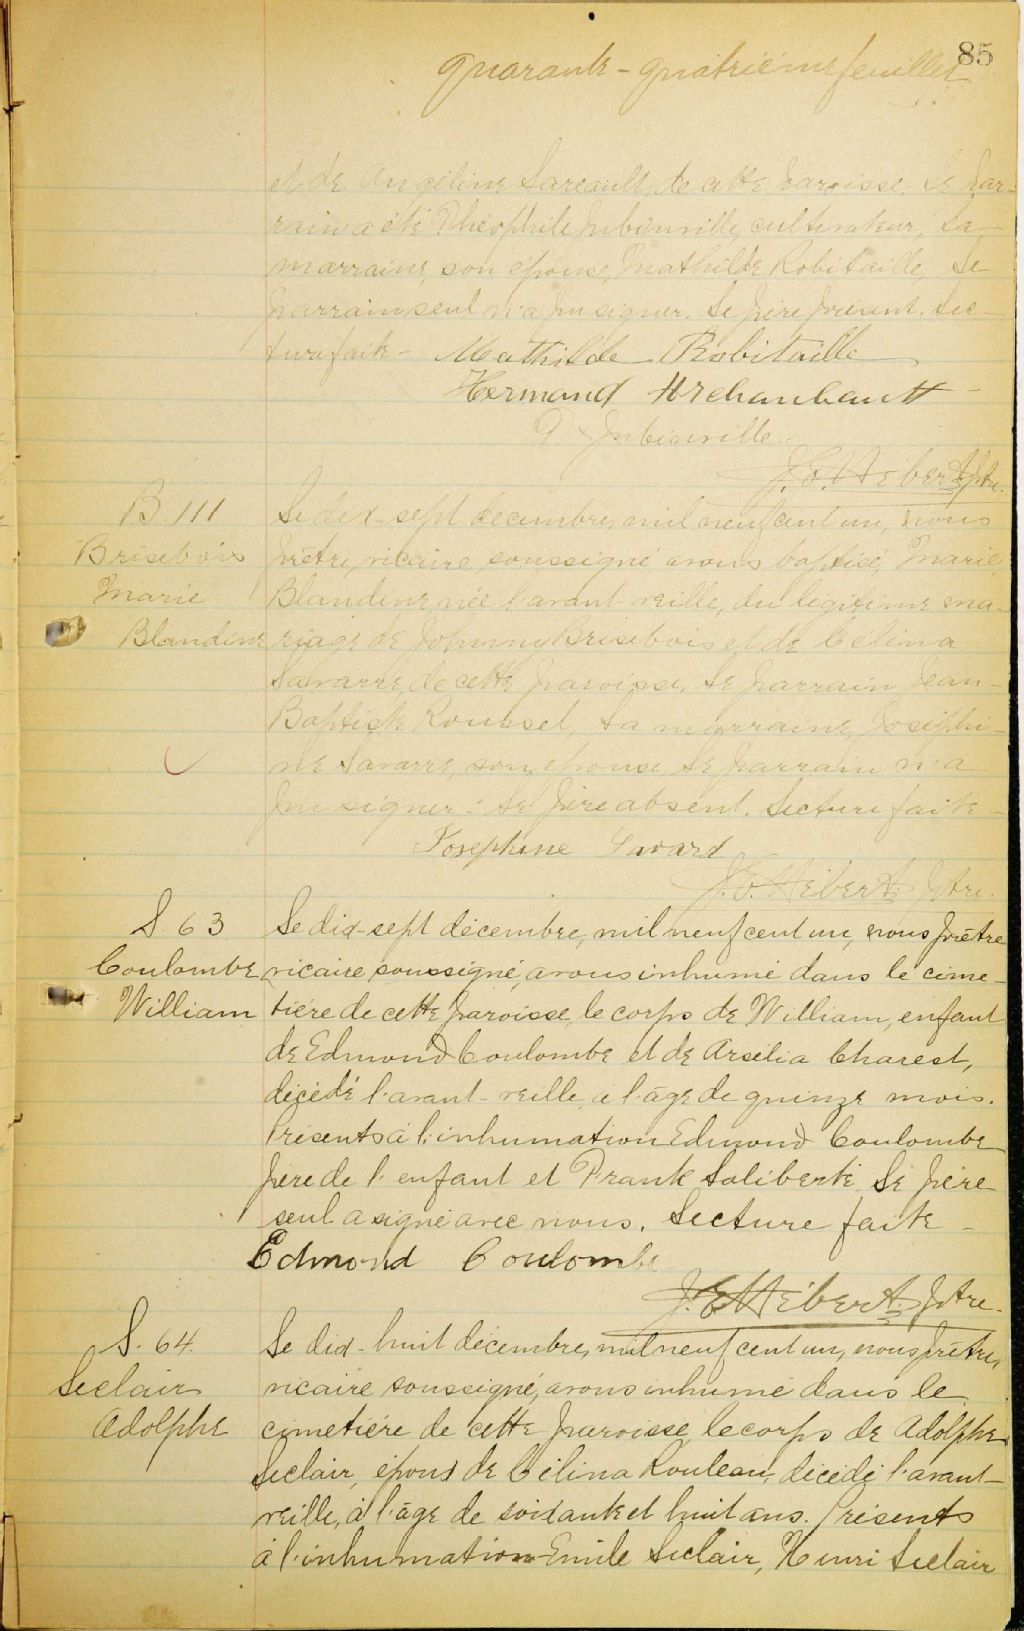 85
quarante-quatrième feuillet
et de Angéline Lareault, de cette paroisse. Le par-
rain a été Théophile Jubinville, cultivateur, La
marraine, son épouse, Mathilde Robitaille, Le
parrain seul n'a pu signer. Le père présent. Lec-
ture faite - Mathilde Robitaille
Hermand Archambault
P Jubinville
J. E. Hébert, Ptre.
B. 111
Brisebois
Marie
Blandine
Le dix-sept décembre, mil neuf cent un, nous
prêtre, vicaire soussigné, avons baptisé, Marie,
Blandine, née l'avant veille, du légitime ma-
riage de Johnny Brisebois et de Célina
Savarre, de cette paroisse. Le parrain Jean-
Baptiste Roussel, La marraine, Joséphi-
ne Savarre, son épouse. Le parrain n'a
pu signer. Le père absent. Lecture faite -
Josephine Savard
J. E. Hébert, Ptre.
S. 63
Coulombe
William
Le dix-sept décembre, mil neuf cent un, nous prêtre
vicaire soussigné, avons inhumé dans le cime-
tière de cette paroisse, le corps de William, enfant
de Edmond Coulombe et de Arsélia Charest,
décédé l'avant-veille, à l'âge de quinze mois.
Présents à l'inhumation Edmond Coulombe
père de l'enfant et Frank Laliberté. Le père
seul a signé avec nous. Lecture faite -
Edmond Coulombe
J. E. Hébert, Ptre.
S. 64
Leclair
Adolphe
Le dix-huit décembre, mil neuf cent un, nous prêtre,
vicaire soussigné, avons inhumé dans le
cimetière de cette paroisse, le corps de Adolphe
Leclair, époux de Célina Rouleau, décédé l'avant-
veille, à l'âge de soixante et huit ans. Présents
à l'inhumation Emile Leclair, Henri Leclair